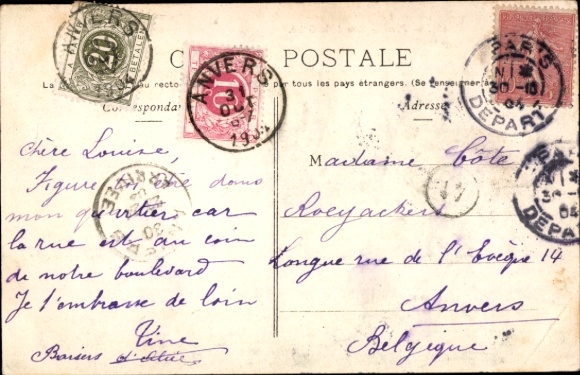 CARTE POSTALE
La
au recto
par tous les pays étrangers. (Se renseigner à
Correspondance
Adresse
20
A PAYER
TE BETALEN
ANVERS
10
ANVERS
31
OCT
1904
PARIS
30-10
04
DEPART
PARIS
30
04
DEPART
ARRIVÉE
30
Chère Louise,
Figure toi une dans
mon quartier car
la rue est au coin
de notre boulevard
Je t'embrasse de loin
Tine
Baisers
Madame Côte
Roeyackers
Longue rue de l'Evèque 14
Anvers
Belgique